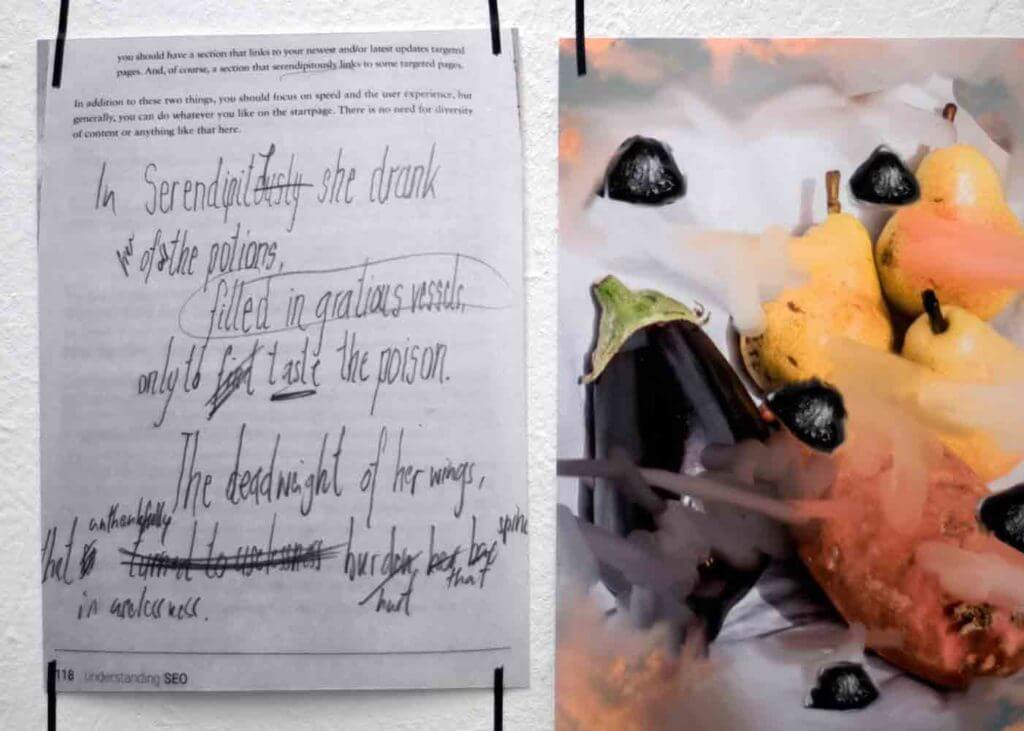 you should have a section that links to your newest and/or latest updates targeted
pages. And, of course, a section that serendipitously links to some targeted pages.
In addition to these two things, you should focus on speed and the user experience, but
generally, you can do whatever you like on the startpage. There is no need for diversity
of content or anything like that here.
In Serendipitously she drank
of the potions,
filled in gratious vessels,
only to find taste the poison.
The deadweight of her wings,
unthankfully spine
that turned to uselessness burden her
that
hurt
in uselessness.
118 Understanding SEO